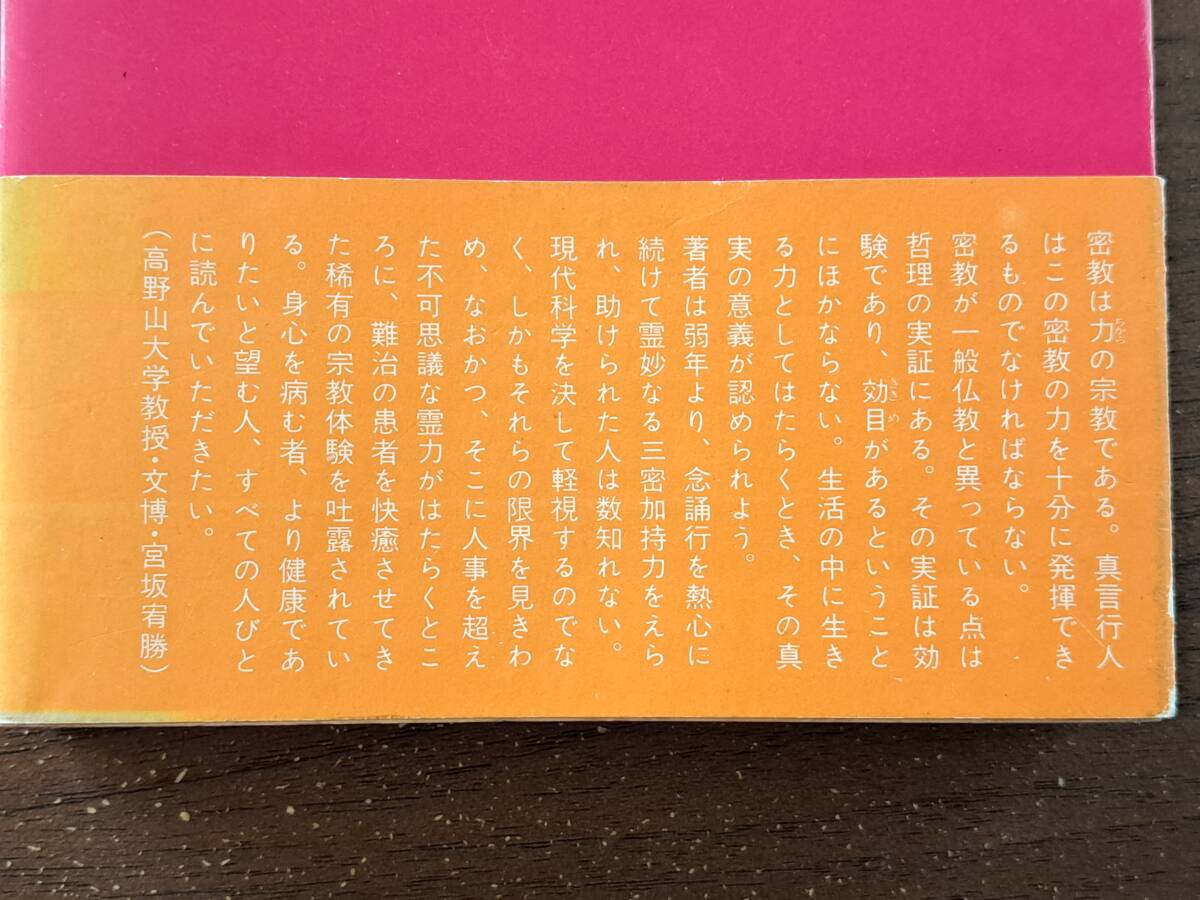 密教は力の宗教である。真言行人
はこの密教の力を十分に発揮でき
るものでなければならない。
密教が一般仏教と異っている点は
哲理の実証にある。その実証は効
験であり、効目があるということ
にほかならない。生活の中に生き
る力としてはたらくとき、その真
実の意義が認められよう。
著者は弱年より、念誦行を熱心に
続けて霊妙なる三密加持力をえら
れ、助けられた人は数知れない。
現代科学を決して軽視するのでな
く、しかもそれらの限界を見きわ
め、なおかつ、そこに人事を超え
た不可思議な霊力がはたらくとこ
ろに、難治の患者を快癒させてき
た稀有の宗教体験を吐露されてい
る。身心を病む者、より健康であ
りたいと望む人、すべての人びと
に読んでいただきたい。
（高野山大学教授・文博・宮坂宥勝）